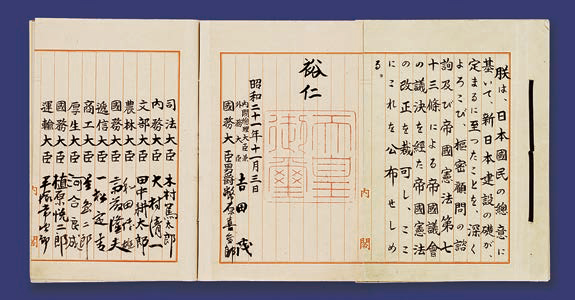 朕は、日本國民の總意に
基いて、新日本建設の礎が、
定まるに至つたことを、深く
よろこび、樞密顧問の諮
詢及び帝國憲法第七
十三條による帝國議會
の議決を経た帝國憲法
の改正を裁可し、ここ
にこれを公布せしめ
る。
内閣
裕仁
天皇御璽
昭和二十一年十一月三日
内閣總理大臣兼
外務大臣 吉田茂
國務大臣 男爵 幣原喜重郎
司法大臣 木村篤太郎
内務大臣 大村清一
文部大臣 田中耕太郎
農林大臣 和田博雄
國務大臣 斎藤隆夫
逓信大臣 一松定吉
商工大臣 星島二郎
厚生大臣 河合良成
國務大臣 植原悦二郎
運輸大臣 平塚常次郎
内閣